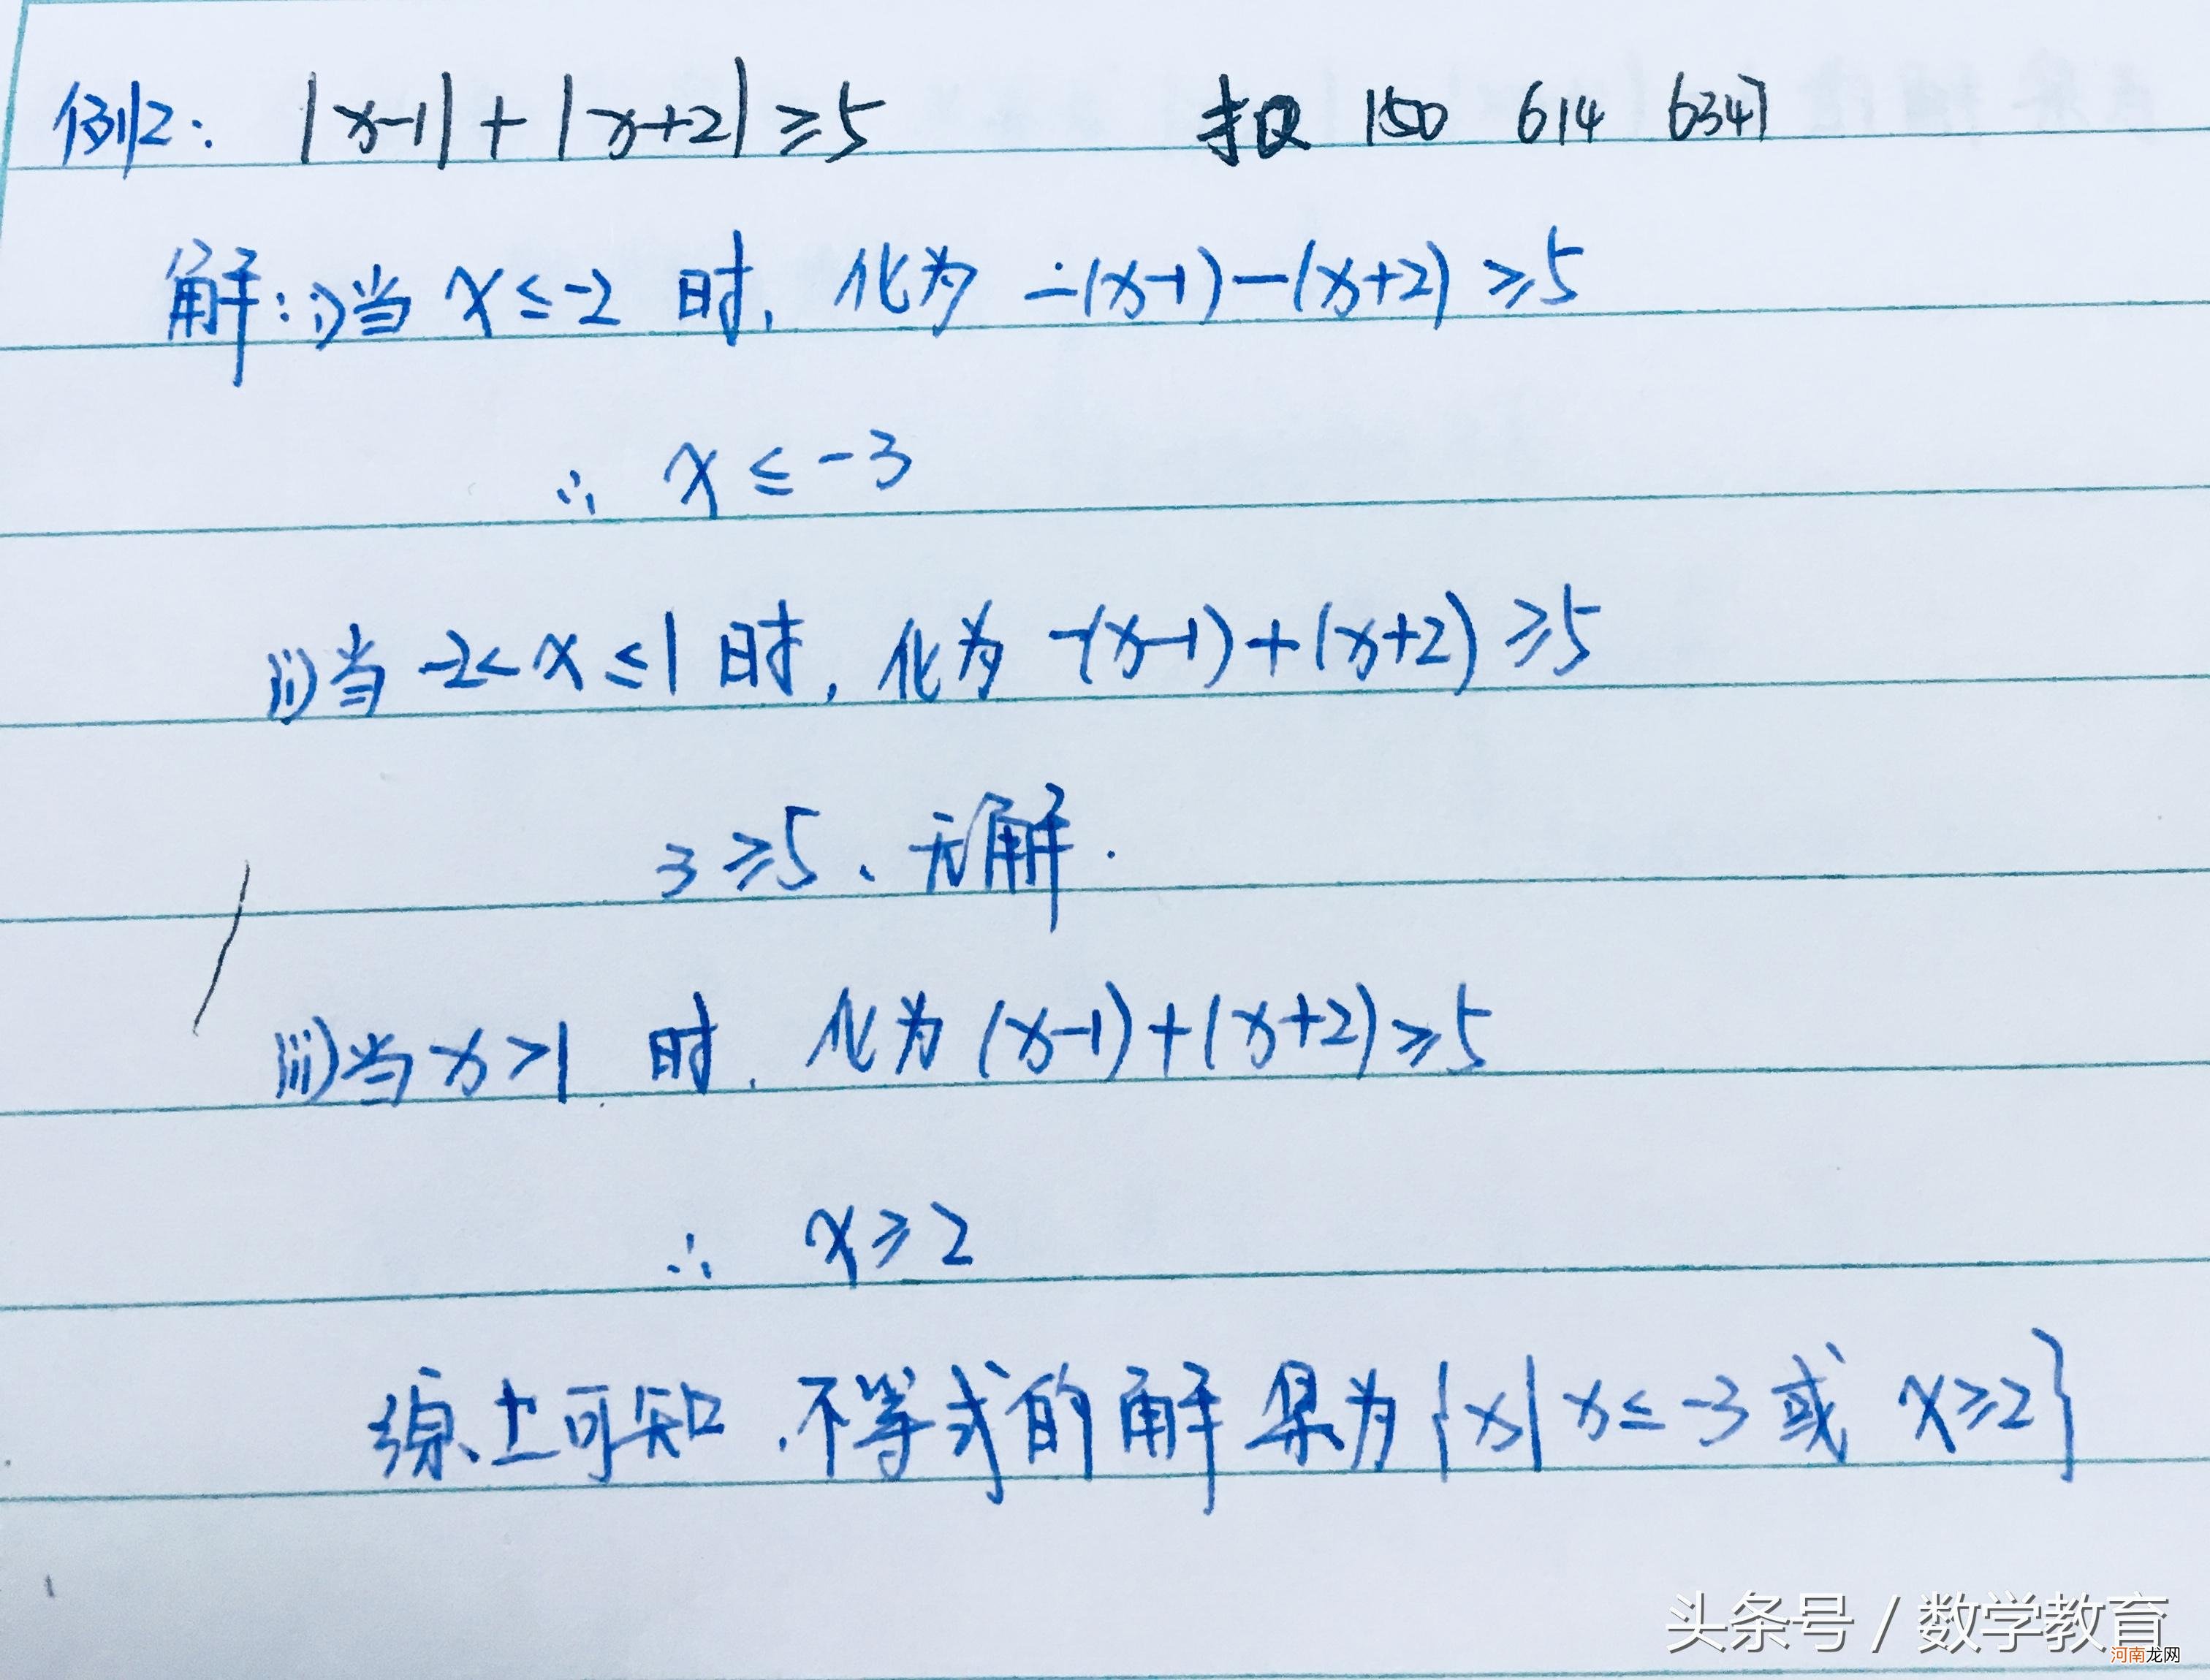 例2: |x-1|+|x+2|≥5 150 614 6347
解: i)当 x≤-2 时, 化为 -(x-1)-(x+2)≥5
∴ x≤-3
ii)当 -2<x≤1 时, 化为 -(x-1)+(x+2)≥5
3≥5、无解.
iii)当 x>1 时, 化为 (x-1)+(x+2)≥5
∴ x≥2
综上可知,不等式的解集为{x|x≤-3或 x≥2}
头条号 / 数学教育
河南龙网